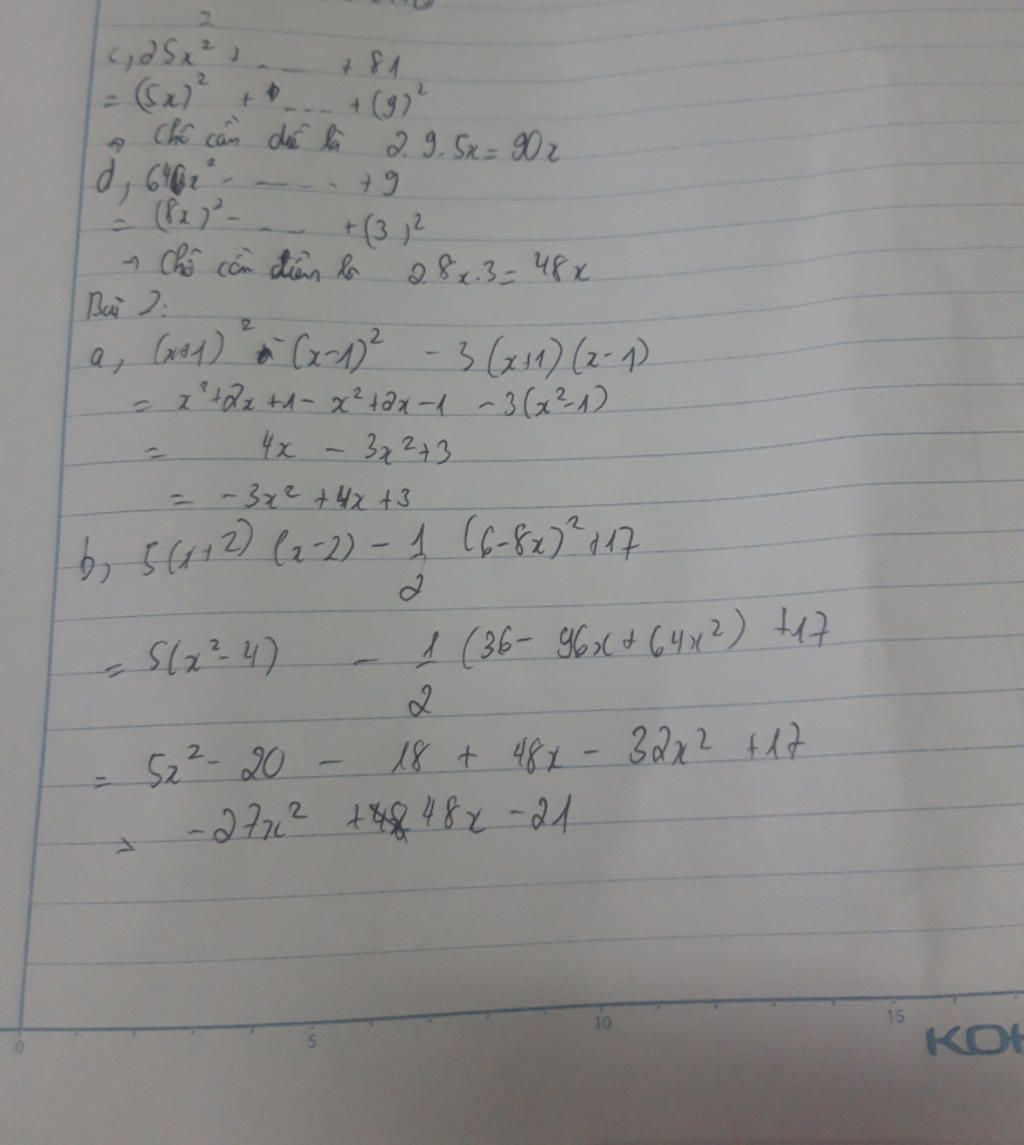 2
c, 25x² + ..... + 81
= (5x)² + ..... + (9)²
→ Chỗ cần là 2.9.5x = 90x
d, 64x² - ...... + 9
= (8x)² - ..... + (3)²
→ Chỗ cần điền là 2.8x.3 = 48x
Bài 2:
a, (x+1)² - (x-1)² - 3(x+1)(x-1)
= x²+2x+1 - x²+2x-1 - 3(x²-1)
= 4x - 3x²+3
= -3x² + 4x + 3
b, 5(x+2)(x-2) - 1/2 (6-8x)² + 17
= 5(x²-4) - 1/2 (36 - 96x + 64x²) + 17
= 5x² - 20 - 18 + 48x - 32x² + 17
= -27x² + 48x - 21
0 5 10 15
KO